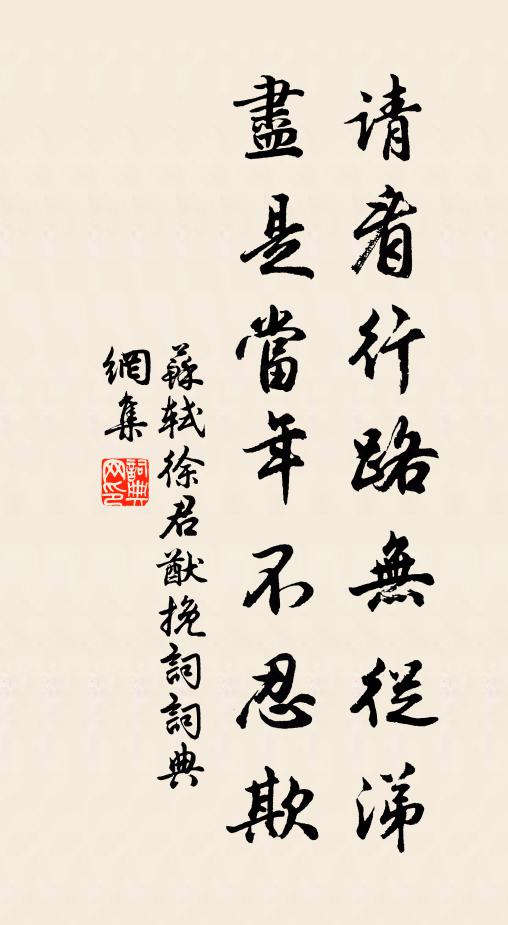 请看行路無從涕
盡是當年不忍欺
蘇軾徐君猷挽詞詞典
網集
詞典
网印